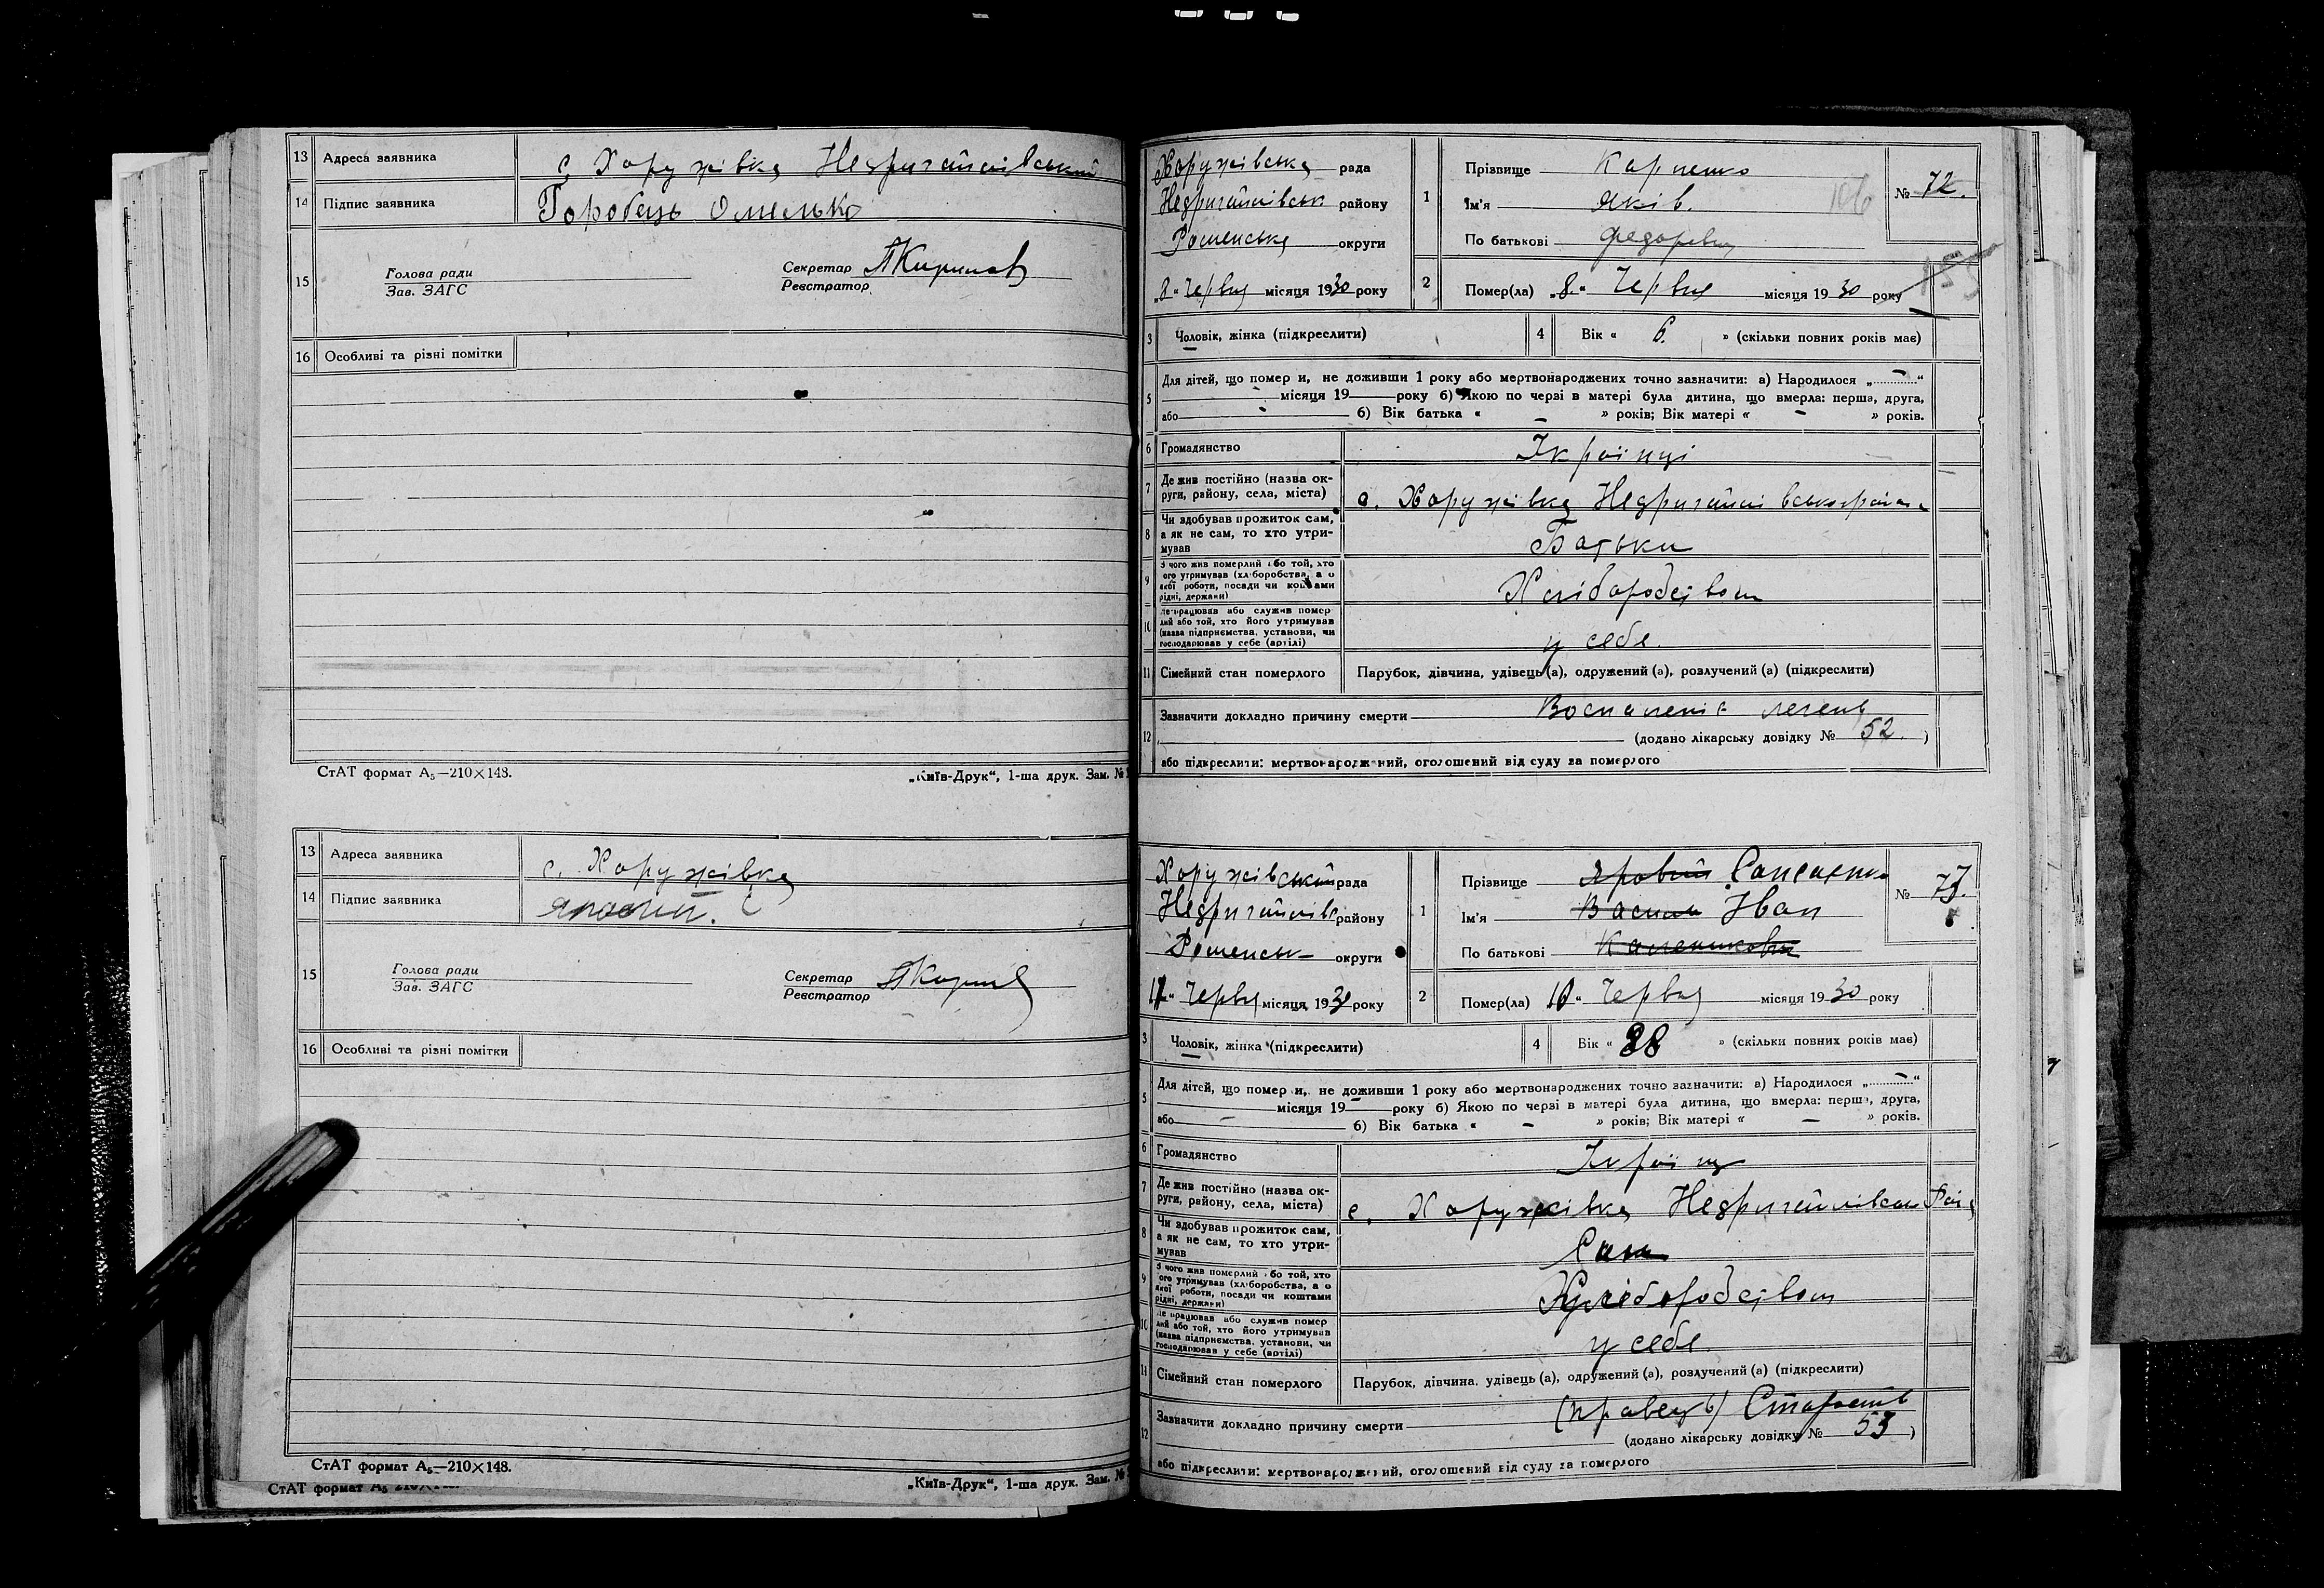 13 Адреса заявника с. Хоружівка Недригайлівський
14 Підпис заявника Горобець Омелько
15 Голова ради
Зав. ЗАГС
Секретар
Реєстратор
16 Особливі та різні помітки
СтАТ формат А₅—210×148.
„Київ-Друк“, 1-ша друк. Зам. №
13 Адреса заявника с. Хоружівка
14 Підпис заявника
15 Голова ради
Зав. ЗАГС
Секретар
Реєстратор
16 Особливі та різні помітки
СтАТ формат А₅—210×148.
„Київ-Друк“, 1-ша друк. Зам. №
СтАТ формат А₅
Хоружівська рада
Недригайлівськ району
Роменська округи
„8“ Червня місяця 1930 року
1 Прізвище Карпенко
Ім'я Яків.
По батькові Федорович
№ 72.
106
2 Помер(ла) „8“ Червня місяця 1930 року
3 Чоловік, жінка (підкреслити)
4 Вік « 6. » (скільки повних років має)
5 Для дітей, що помер и, не доживши 1 року або мертвонароджених точно зазначити: а) Народилося „ — “
місяця 19 року б) Якою по черзі в матері була дитина, що вмерла: перша, друга,
або б) Вік батька « — » років; Вік матері « — » років.
6 Громадянство Українці
7 Де жив постійно (назва ок-
руги, району, села, міста) с. Хоружівка Недригайлівського
8 Чи здобував прожиток сам,
а як не сам, то хто утри-
мував Батьки
9 З чого жив померлий або той, хто
його утримував (хліборобства, а о
якої роботи, посади чи коштами
рідні, держави) Хліборобством
10 Де працював або служив помер
лий або той, хто його утримував
(назва підприємства, установи, чи
господарював у себе (артілі) у себе.
11 Сімейний стан померлого Парубок, дівчина, удівець (а), одружений (а), розлучений (а) (підкреслити)
12 Зазначити докладно причину смерти Воспаленіє легень
(додано лікарську довідку № 52. )
або підкреслити: мертвонароджений, оголошений від суду за померлого
Хоружівський рада
Недригайлів району
Роменськ округи
Червня місяця 1930 року
1 Прізвище Яровий
Ім'я Василь Іван
По батькові
№ 73.
2 Помер(ла) 10 „ Червня місяця 1930 року
3 Чоловік, жінка (підкреслити)
4 Вік « 88 » (скільки повних років має)
5 Для дітей, що помер и, не доживши 1 року або мертвонароджених точно зазначити: а) Народилося „ — “
місяця 19 — року б) Якою по черзі в матері була дитина, що вмерла: перша, друга,
або — б) Вік батька « — » років; Вік матері « — » років.
6 Громадянство
7 Де жив постійно (назва ок-
руги, району, села, міста) с. Хоружівка
8 Чи здобував прожиток сам,
а як не сам, то хто утри-
мував Сам
9 З чого жив померлий або той, хто
його утримував (хліборобства, а о
якої роботи, посади чи коштами
рідні, держави) Хліборобством
10 Де працював або служив помер
лий або той, хто його утримував
(назва підприємства, установи, чи
господарював у себе (артілі) у себе
11 Сімейний стан померлого Парубок, дівчина, удівець (а), одружений (а), розлучений (а) (підкреслити)
12 Зазначити докладно причину смерти Старость
(додано лікарську довідку № 53 )
або підкреслити: мертвонароджений, оголошений від суду за померлого